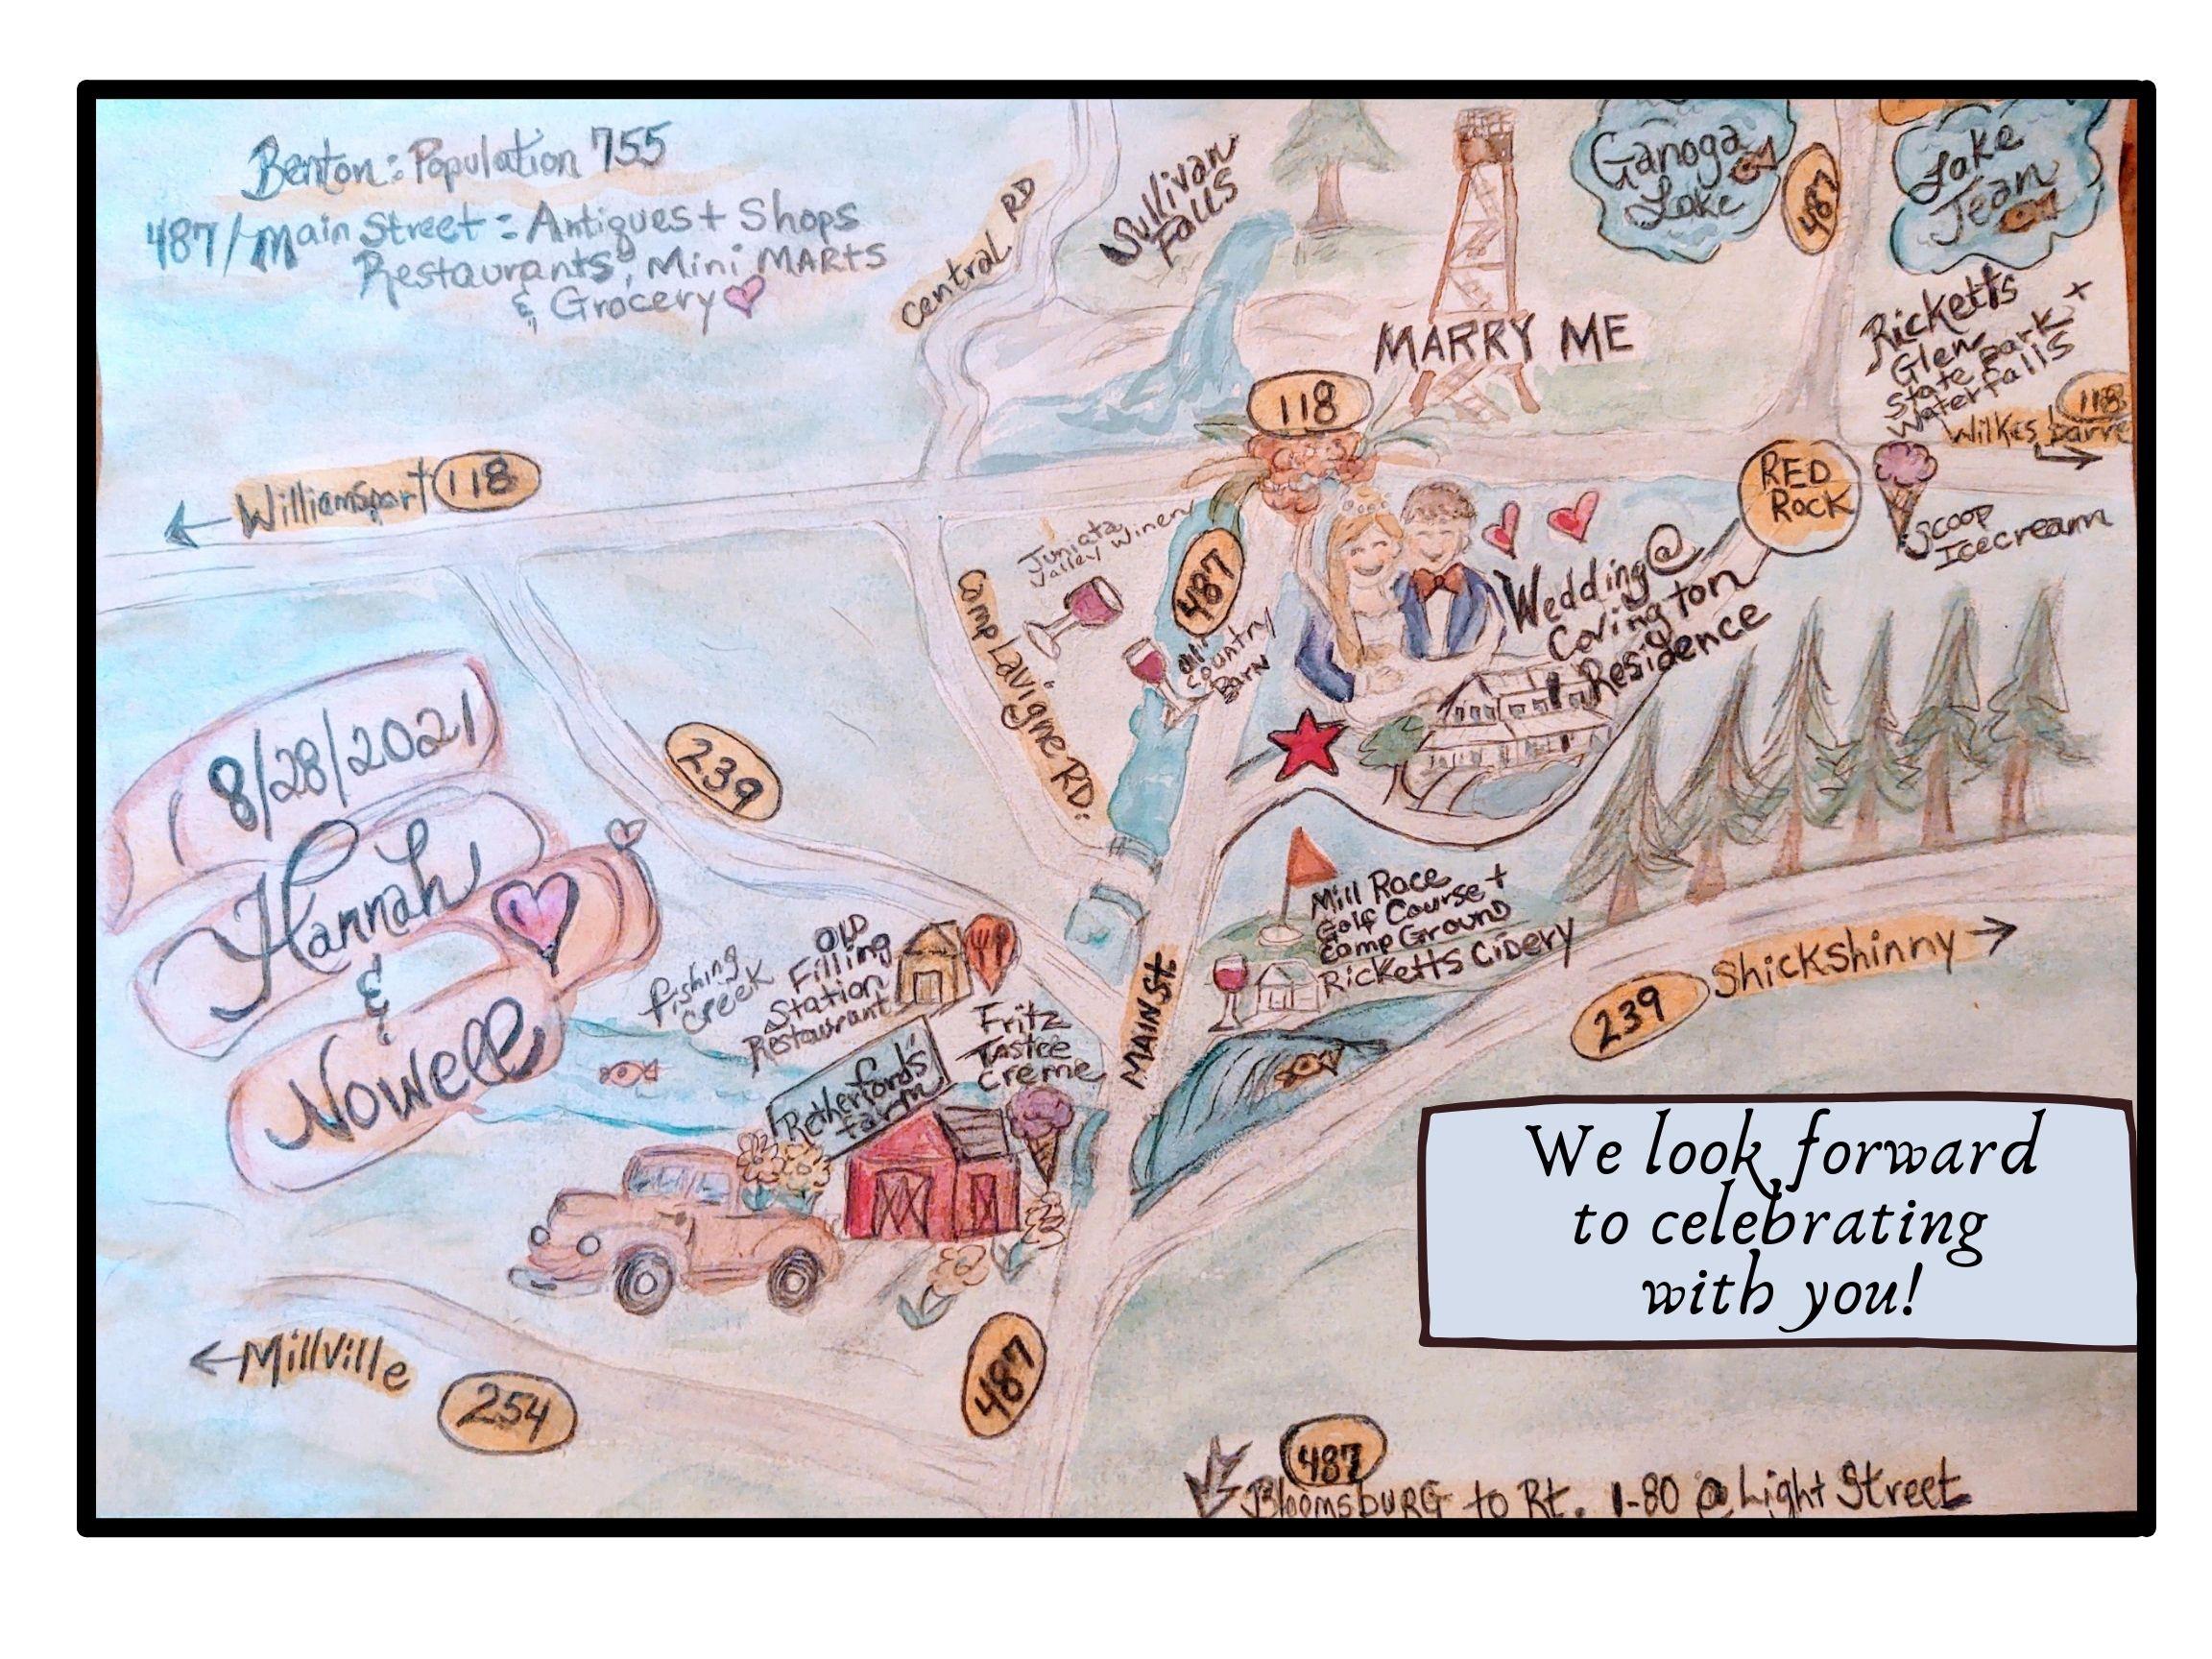 Benton: Population 755
487/Main Street: Antiques + Shops
Restaurants, Mini MARTS
& Grocery
Central RD
Sullivan
Falls
Ganoga
Lake
487
Lake
Jean
MARRY ME
Ricketts
Glen
State park +
Waterfalls
118
118
Wilkes barre
Williamsport 118
RED
ROCK
Scoop
Icecream
Juniata
Valley Winery
487
Camp Lavigne RD.
Country
Barn
Wedding @
Covington
Residence
8/28/2021
Hannah
&
Nowell
239
Mill Race
Golf Course +
Camp Ground
Ricketts Cidery
fishing
creek
OLD
Filling
Station
Restaurant
Fritz
Tastee
Creme
MAIN St.
239 Shickshinny
Retherford's
Farm
We look forward
to celebrating
with you!
Millville
254
487
487
Bloomsburg to Rt. I-80 @ Light Street